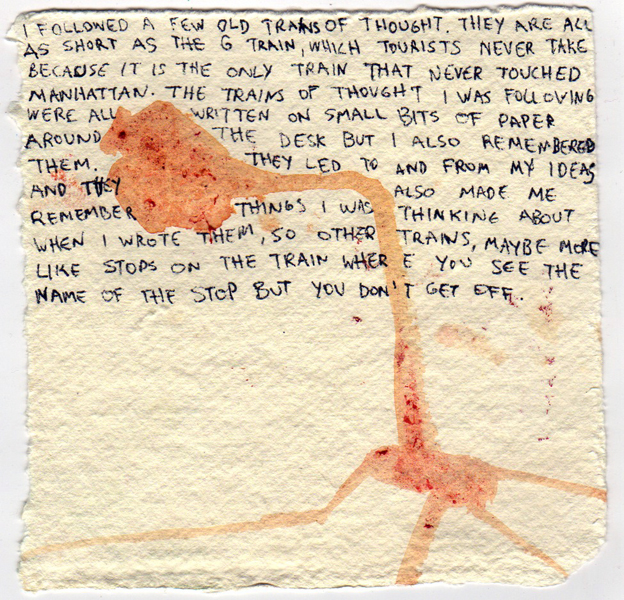 I FOLLOWED A FEW OLD TRAINS OF THOUGHT. THEY ARE ALL
AS SHORT AS THE G TRAIN, WHICH TOURISTS NEVER TAKE
BECAUSE IT IS THE ONLY TRAIN THAT NEVER TOUCHED
MANHATTAN. THE TRAINS OF THOUGHT I WAS FOLLOWING
WERE ALL WRITTEN ON SMALL BITS OF PAPER
AROUND THE DESK BUT I ALSO REMEMBERED
THEM. THEY LED TO AND FROM MY IDEAS
AND THEY ALSO MADE ME
REMEMBER THINGS I WAS THINKING ABOUT
WHEN I WROTE THEM, SO OTHER TRAINS, MAYBE MORE
LIKE STOPS ON THE TRAIN WHERE YOU SEE THE
NAME OF THE STOP BUT YOU DON'T GET OFF..